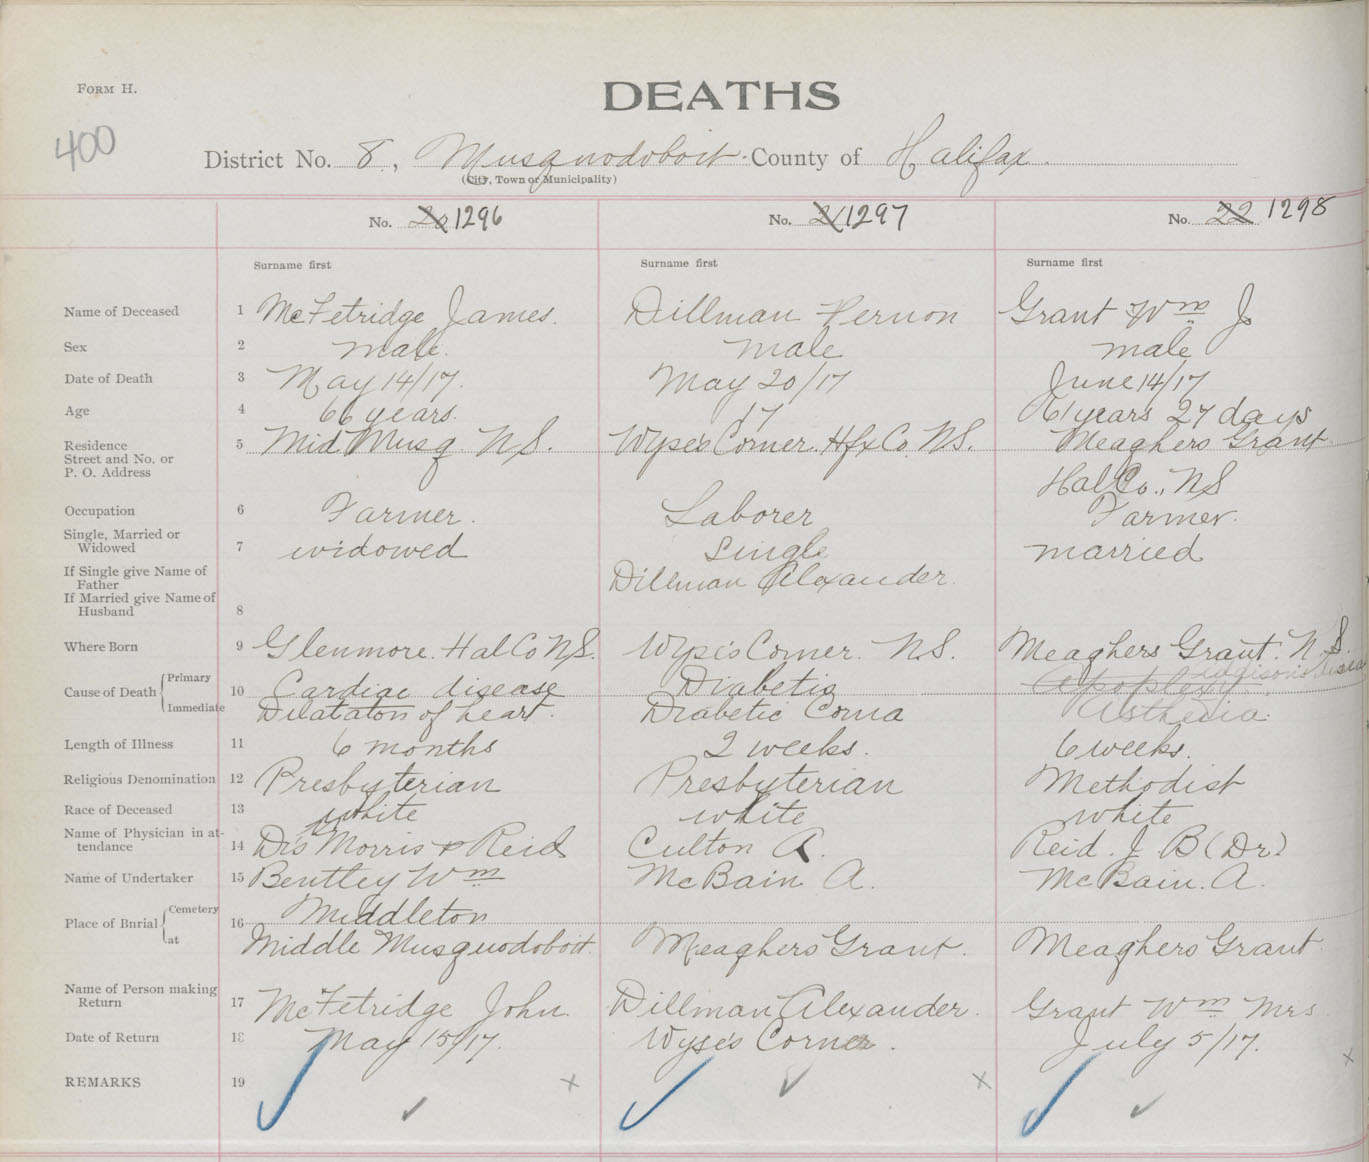 FORM H.
DEATHS
400
District No. 8, Musquodoboit County of Halifax.
(City, Town or Municipality)
No. 20 1296 No. 21 1297 No. 22 1298
Surname first Surname first Surname first
Name of Deceased 1 McFetridge James. Dillman Vernon Grant Wm J
Sex 2 male. male male
Date of Death 3 May 14/17. May 20/17 June 14/17
Age 4 66 years. 17 61 years 27 days
Residence 5 Mid Musq N.S. Wyse's Corner. Hfx Co. N.S. Meaghers Grant
Street and No. or
P. O. Address Hal Co., NS
Occupation 6 Farmer. Laborer Farmer.
Single, Married or
Widowed 7 widowed Single married
If Single give Name of
Father Dillman Alexander.
If Married give Name of
Husband 8
Where Born 9 Glenmore. Hal Co N.S. Wyse's Corner. N.S. Meaghers Grant. N.S.
Cause of Death Primary 10 Cardiac disease Diabetis Apoplexy Addison's disease
Immediate Dilataton of heart. Diabetic Coma Asthenia.
Length of Illness 11 6 months 2 weeks. 6 weeks.
Religious Denomination 12 Presbyterian Presbyterian Methodist
Race of Deceased 13 white white white
Name of Physician in at-
tendance 14 Drs Morris & Reid Culton A. Reid. J B (Dr.)
Name of Undertaker 15 Bentley Wm McBain A. McBain. A.
Place of Burial Cemetery 16 Middleton
at Middle Musquodoboit. Meaghers Grant. Meaghers Grant.
Name of Person making
Return 17 McFetridge John. Dillman Alexander. Grant Wm Mrs
Date of Return 18 May 15/17. Wyse's Corner. July 5/17.
REMARKS 19 x x x